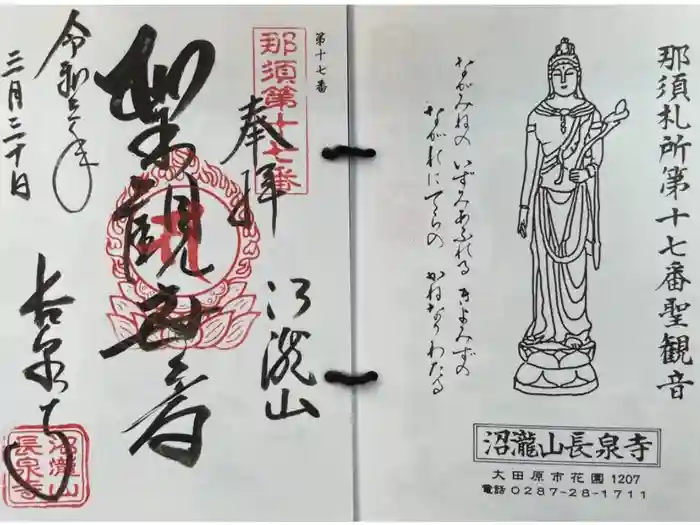 那須札所第十七番聖観音
ながみねの いずみあふれる きよみずの
ながれにてらの かねなりわたる
沼瀧山長泉寺
大田原市花園1207
電話0287-28-1711
第十七番
那須第十七番
奉拝
沼瀧山
聖観世音
長泉寺
三月二十日
沼瀧山
長泉寺